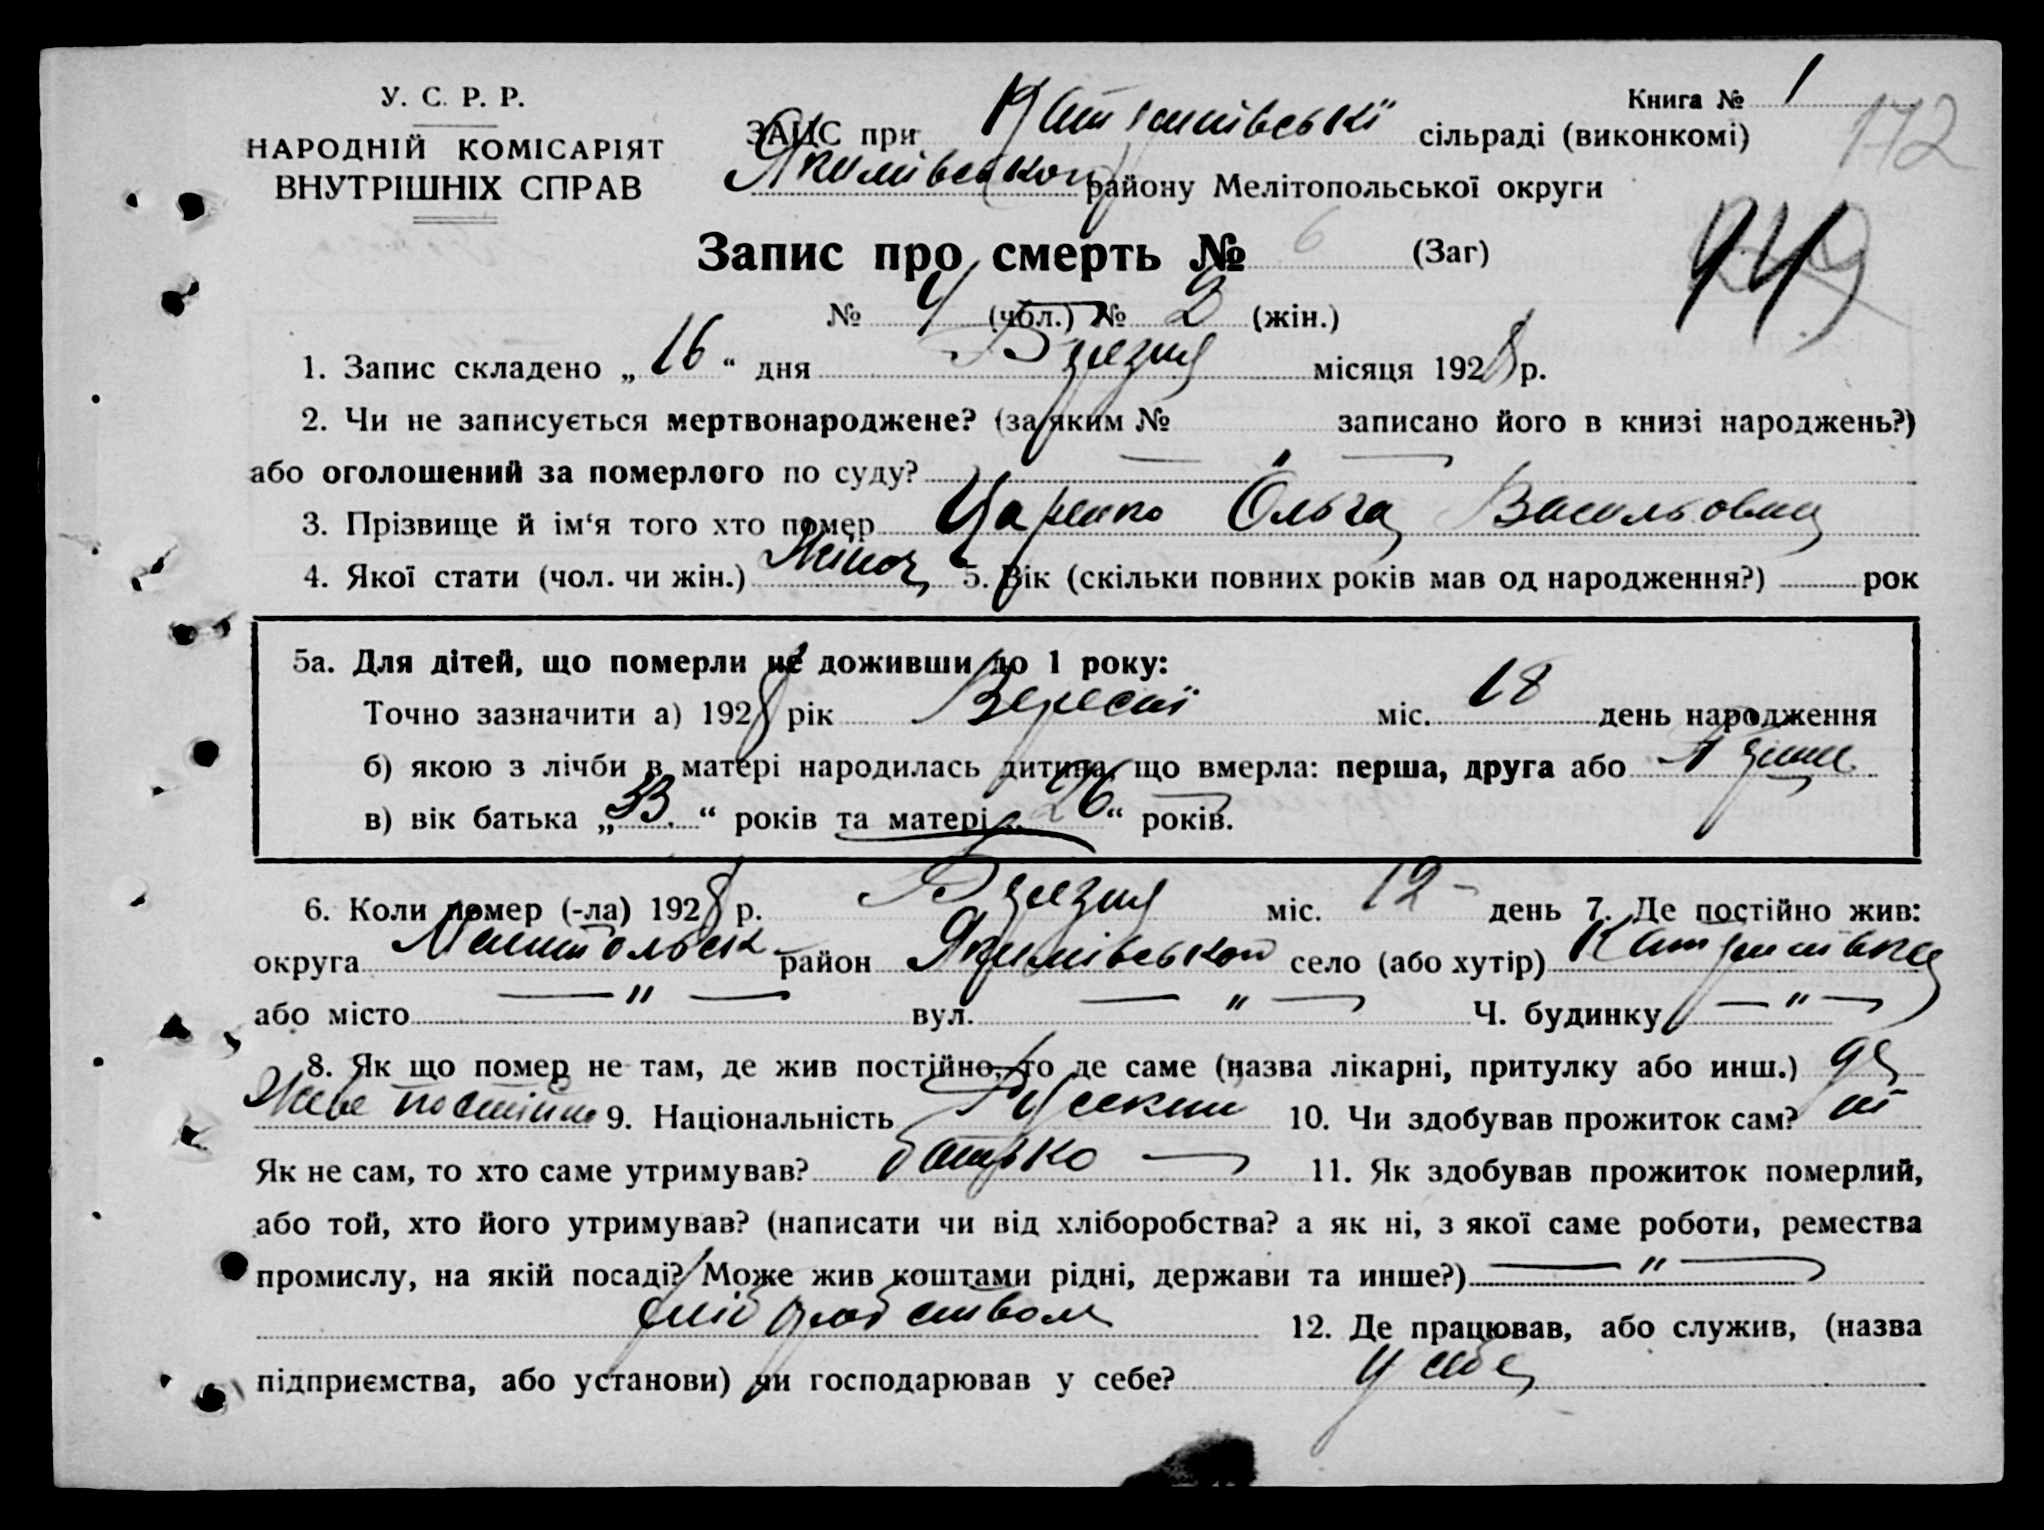 У. С. Р. Р.
НАРОДНІЙ КОМІСАРІЯТ
ВНУТРІШНІХ СПРАВ
Книга № 1
172
ЗАЦС при сільраді (виконкомі)
Якимівської району Мелітопольської округи
Запис про смерть № 6 (Заг)
№ 4 (чол.) № 2 (жін.)
1. Запис складено „ 16 “ дня Березня місяця 1928 р.
2. Чи не записується мертвонароджене? (за яким № записано його в книзі народжень?)
або оголошений за померлого по суду? — " —
3. Прізвище й ім‘я того хто помер Царенко Ольга Васильовна
4. Якої стати (чол. чи жін.) Жіноч 5. Вік (скільки повних років мав од народження?) рок
5а. Для дітей, що померли не доживши до 1 року:
Точно зазначити а) 1928 рік міс. 18 день народження
б) якою з лічби в матері народилась дитина, що вмерла: перша, друга або
в) вік батька „ 33 “ років та матері „ 26 “ років.
6. Коли помер (-ла) 1928 р. Березня міс. 12 - день 7. Де постійно жив:
округа район Якимівської село (або хутір)
або місто — " — вул. — " — Ч. будинку — " —
8. Як що помер не там, де жив постійно, то де саме (назва лікарні, притулку або инш.) де
Живе постійно 9. Національність Руський 10. Чи здобував прожиток сам? ні
Як не сам, то хто саме утримував? батько — 11. Як здобував прожиток померлий,
або той, хто його утримував? (написати чи від хліборобства? а як ні, з якої саме роботи, ремества
промислу, на якій посаді? Може жив коштами рідні, держави та инше?) — " —
хліборобством 12. Де працював, або служив, (назва
підприємства, або установи) чи господарював у себе? у себе